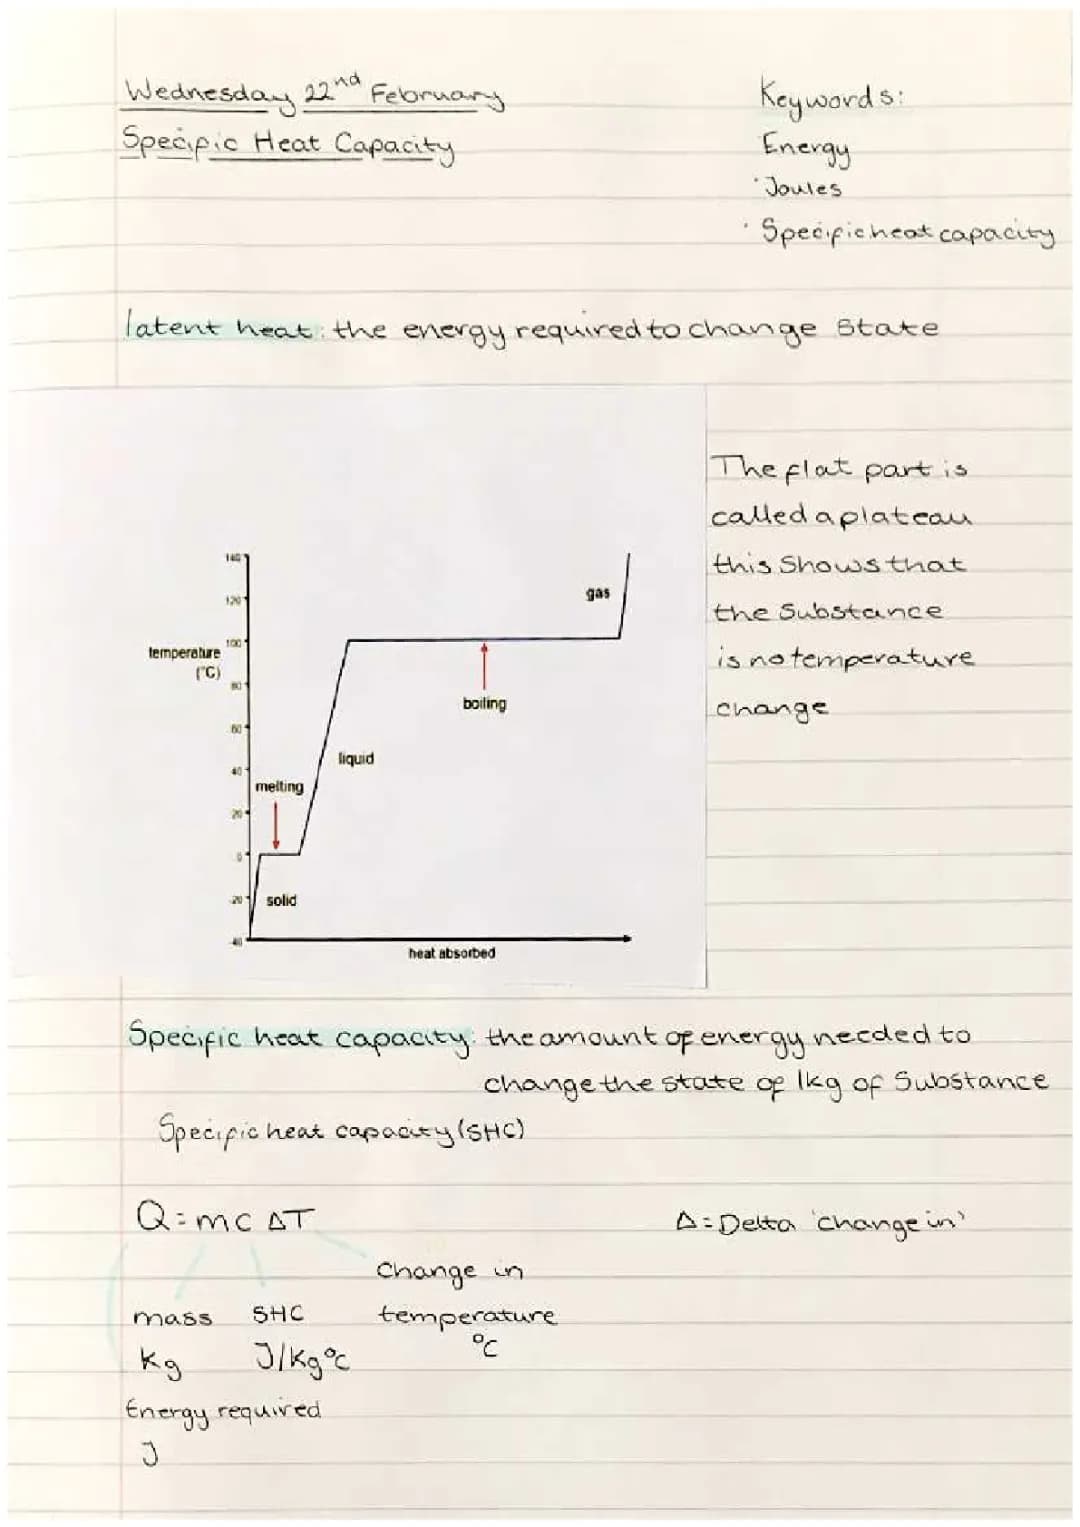 Wednesday 22nd February
Specific Heat Capacity
Keywords:
Energy
· Joules
· Specific heat capacity
latent heat: the energy required to change state
The flat part is
called a plateau
this shows that
the substance
is no temperature
change
140
120
temperature
(°C)
100
80
60
40
20
0
-20
-40
gas
boiling
liquid
melting
solid
heat absorbed
Specific heat capacity: the amount of energy needed to
change the state of 1kg of substance
Specific heat capacity (SHC)
Q = mc ΔT
Δ = Delta 'change in'
Change in
mass SHC temperature
kg J/kg°c °C
Energy required
J